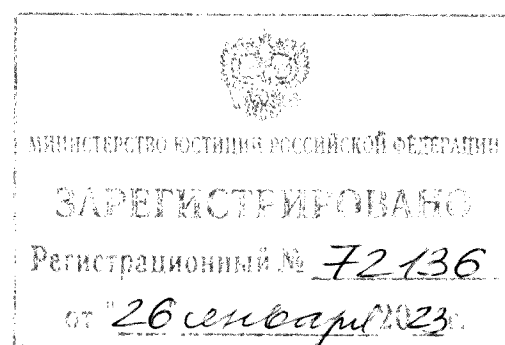 МИНИСТЕРСТВО ЮСТИЦИИ РОССИЙСКОЙ ФЕДЕРАЦИИ
ЗАРЕГИСТРИРОВАНО
Регистрационный № 72136
от "26" января 2023 г.